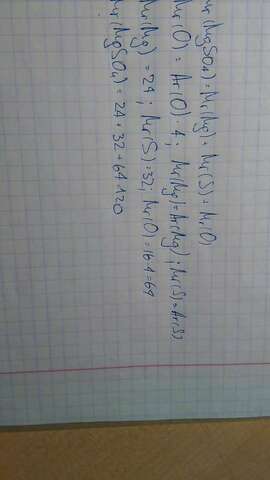 Mr(MgSO4) = Mr(Mg) + Mr(S) + Mr(O)
Mr(O) = Ar(O) · 4; Mr(Mg) = Ar(Mg); Mr(S) = Ar(S)
Mr(Mg) = 24; Mr(S) = 32; Mr(O) = 16·4 = 64
Mr(MgSO4) = 24 + 32 + 64 = 120